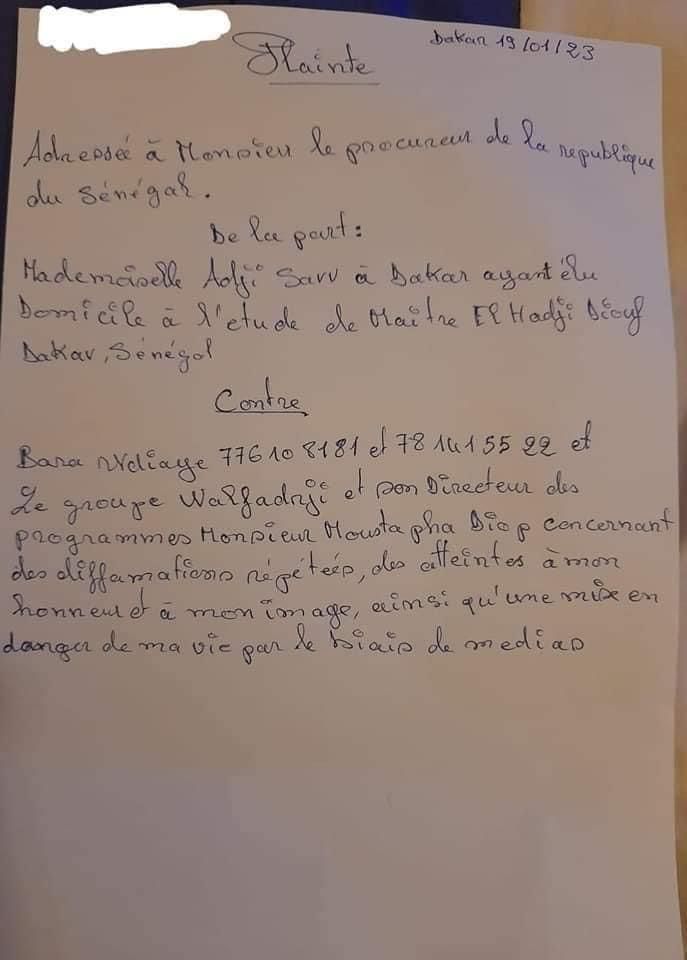 Dakar 19/01/23
Plainte
Adressée à Monsieur le procureur de la republique
du Sénégal.
De la part:
Mademoiselle Adji Sarr à Dakar ayant élu
Domicile à l'etude de Maître El Hadji Diouf
Dakar, Sénégal
Contre
Bara Ndiaye 77610 8181 et 78 141 55 22 et
Le groupe Walfadjri et son Directeur des
programmes Monsieur Moustapha Diop concernant
des diffamations répétées, des atteintes à mon
honneur et à mon image, ainsi qu'une mise en
danger de ma vie par le biais de medias